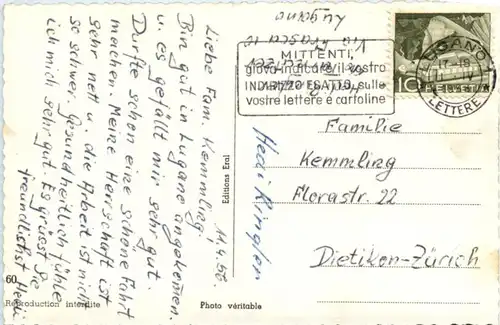 11.4.56.
Liebe Fam. Kemmling!
Bin gut in Lugano angekommen
u. es gefällt mir sehr gut.
Durfte schon eine schöne Fahrt
machen. Meine Herrschaft ist
sehr nett u. die Arbeit ist nicht
so schwer. Gesundheitlich fühle
ich mich sehr gut. Es grüsst Sie
freundlichst Hedi.
Hedi
Editions Eral
60
Reproduction interdite
Photo véritable
Lugano
MITTENTI,
giova indicare il vostro
INDIRIZZO ESATTO sulle
vostre lettere e cartoline
LUGANO
LETTERE
10
Familie
Kemmling
Florastr. 22
Dietikon-Zürich